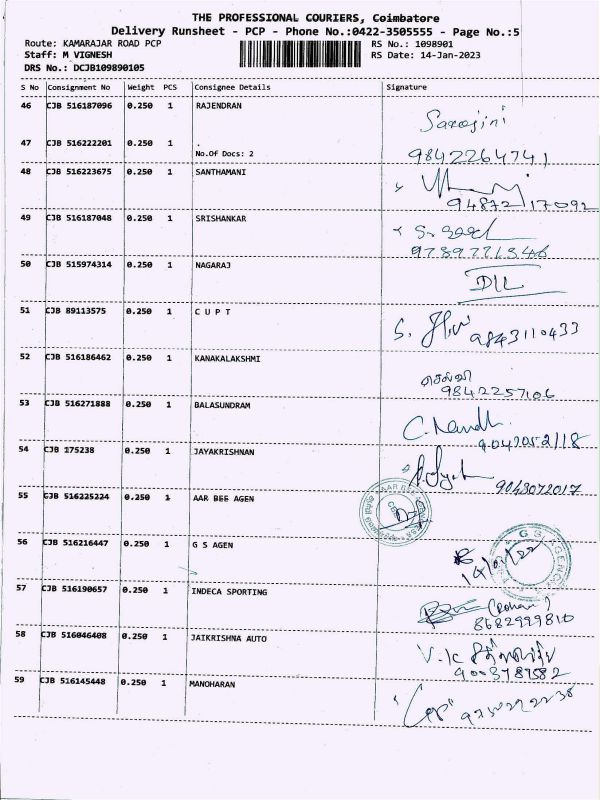 THE PROFESSIONAL COURIERS, Coimbatore
Delivery Runsheet - PCP - Phone No.:0422-3505555 - Page No.:5
Route: KAMARAJAR ROAD PCP
RS No.: 1098901
Staff: M VIGNESH
RS Date: 14-Jan-2023
DRS No.: DCJB109890105
S No Consignment No Weight PCS Consignee Details Signature
46 CJB 516187096 0.250 1 RAJENDRAN
Sarojini
47 CJB 516222201 0.250 1 .
No.Of Docs: 2
9842264741
48 CJB 516223675 0.250 1 SANTHAMANI
94872 17092
49 CJB 516187048 0.250 1 SRISHANKAR
9789771546
50 CJB 515974314 0.250 1 NAGARAJ
DIL
51 CJB 89113575 0.250 1 C U P T
S. 9843110433
52 CJB 516186462 0.250 1 KANAKALAKSHMI
செல்வி
9842257106
53 CJB 516271888 0.250 1 BALASUNDRAM
C. Nandh
9047052118
54 CJB 175238 0.250 1 JAYAKRISHNAN
9043072017
55 CJB 516225224 0.250 1 AAR BEE AGEN
AAR BEE
56 CJB 516216447 0.250 1 G S AGEN
G S AGENCY
57 CJB 516190657 0.250 1 INDECA SPORTING
8682999810
58 CJB 516046408 0.250 1 JAIKRISHNA AUTO
V.K
9003787582
59 CJB 516145448 0.250 1 MANOHARAN